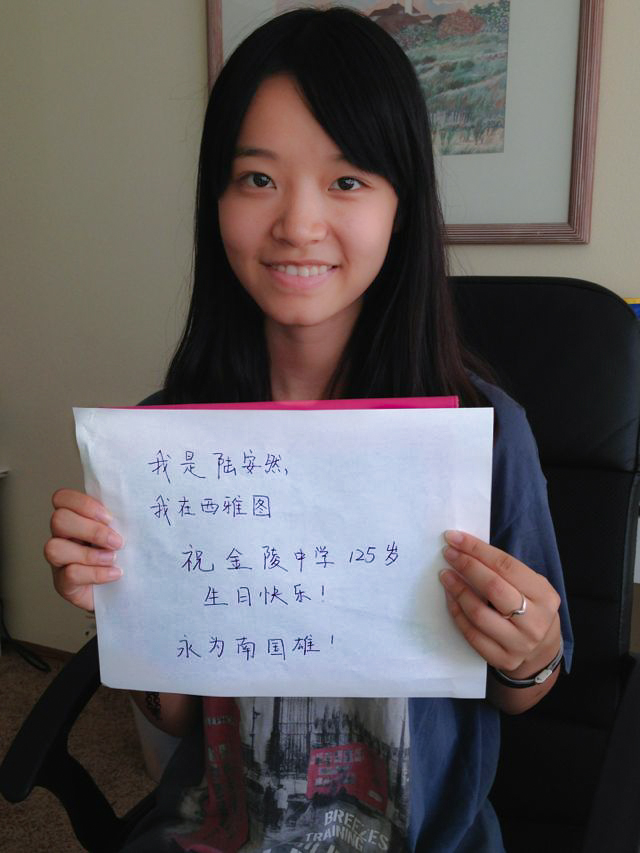 我是陆安然,
我在西雅图
祝金陵中学125岁
生日快乐!
永为南国雄!
BREEZES
TRAINING